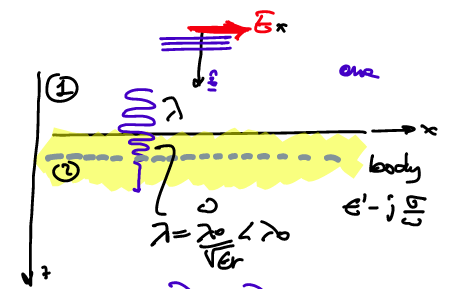 E x
k
①
λ
x
②
body
ω
ε' - j σ/ω
λ = λ₀/√εr < λ₀
z